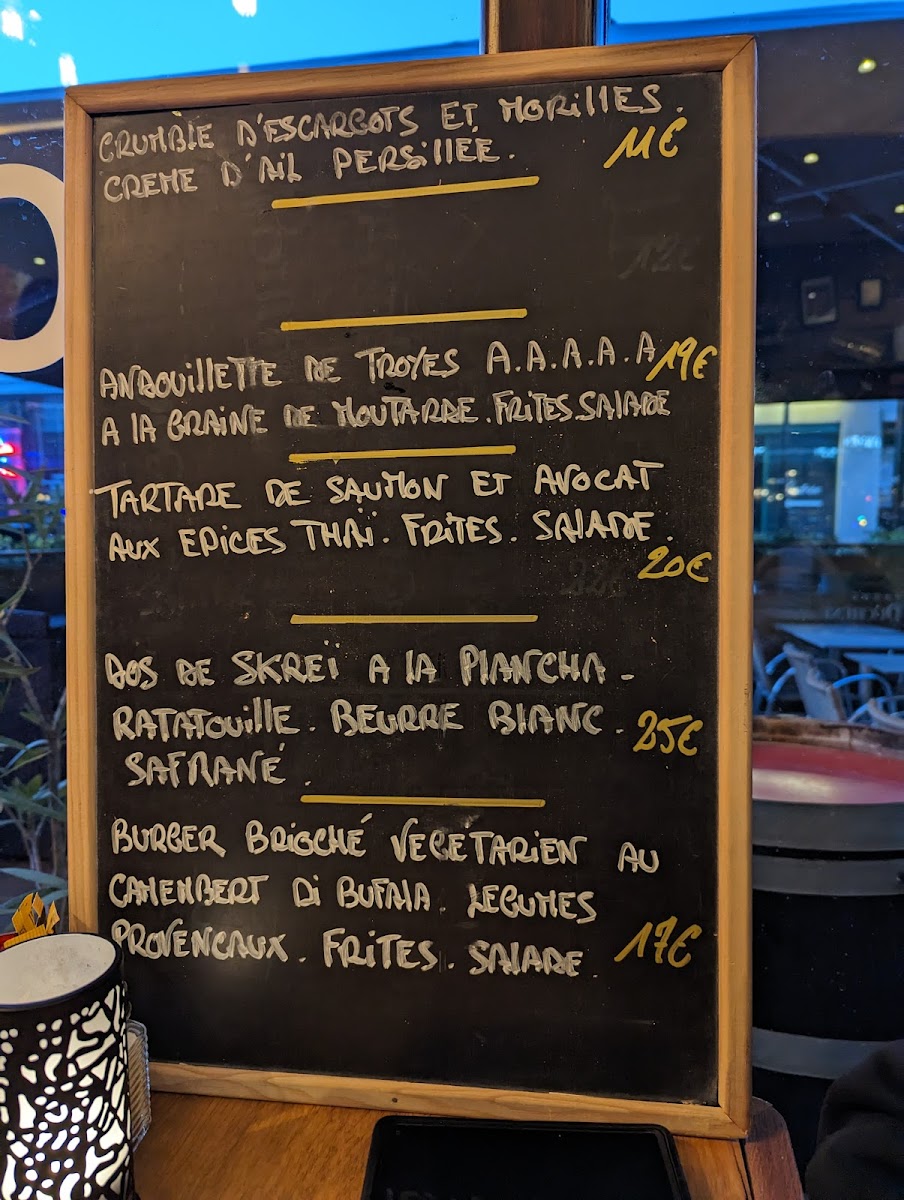 CRUMBLE D'ESCARGOTS ET MORILLES.
CREME D'AIL PERSILLÉE.
11€
12€
ANDOUILLETTE DE TROYES A.A.A.A.A 19€
A LA GRAINE DE MOUTARDE. FRITES SALADE
TARTARE DE SAUMON ET AVOCAT
AUX EPICES THAÏ. FRITES. SALADE.
20€
DOS DE SKREÏ A LA PLANCHA.
RATATOUILLE. BEURRE BLANC. 25€
SAFRANÉ.
BURGER BRIOCHÉ VEGETARIEN AU
CAMEMBERT DI BUFALA. LEGUMES
PROVENCAUX. FRITES. SALADE. 17€